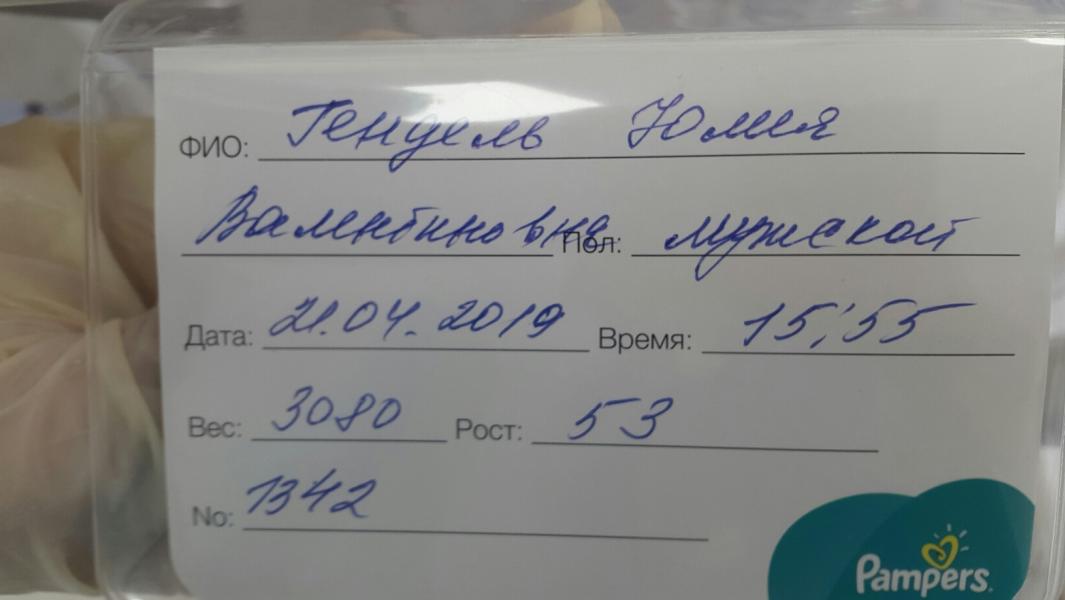 ФИО: Гендель Юлия
Валентиновна Пол: мужской
Дата: 21.04.2019 Время: 15:55
Вес: 3080 Рост: 53
No: 1342
Pampers